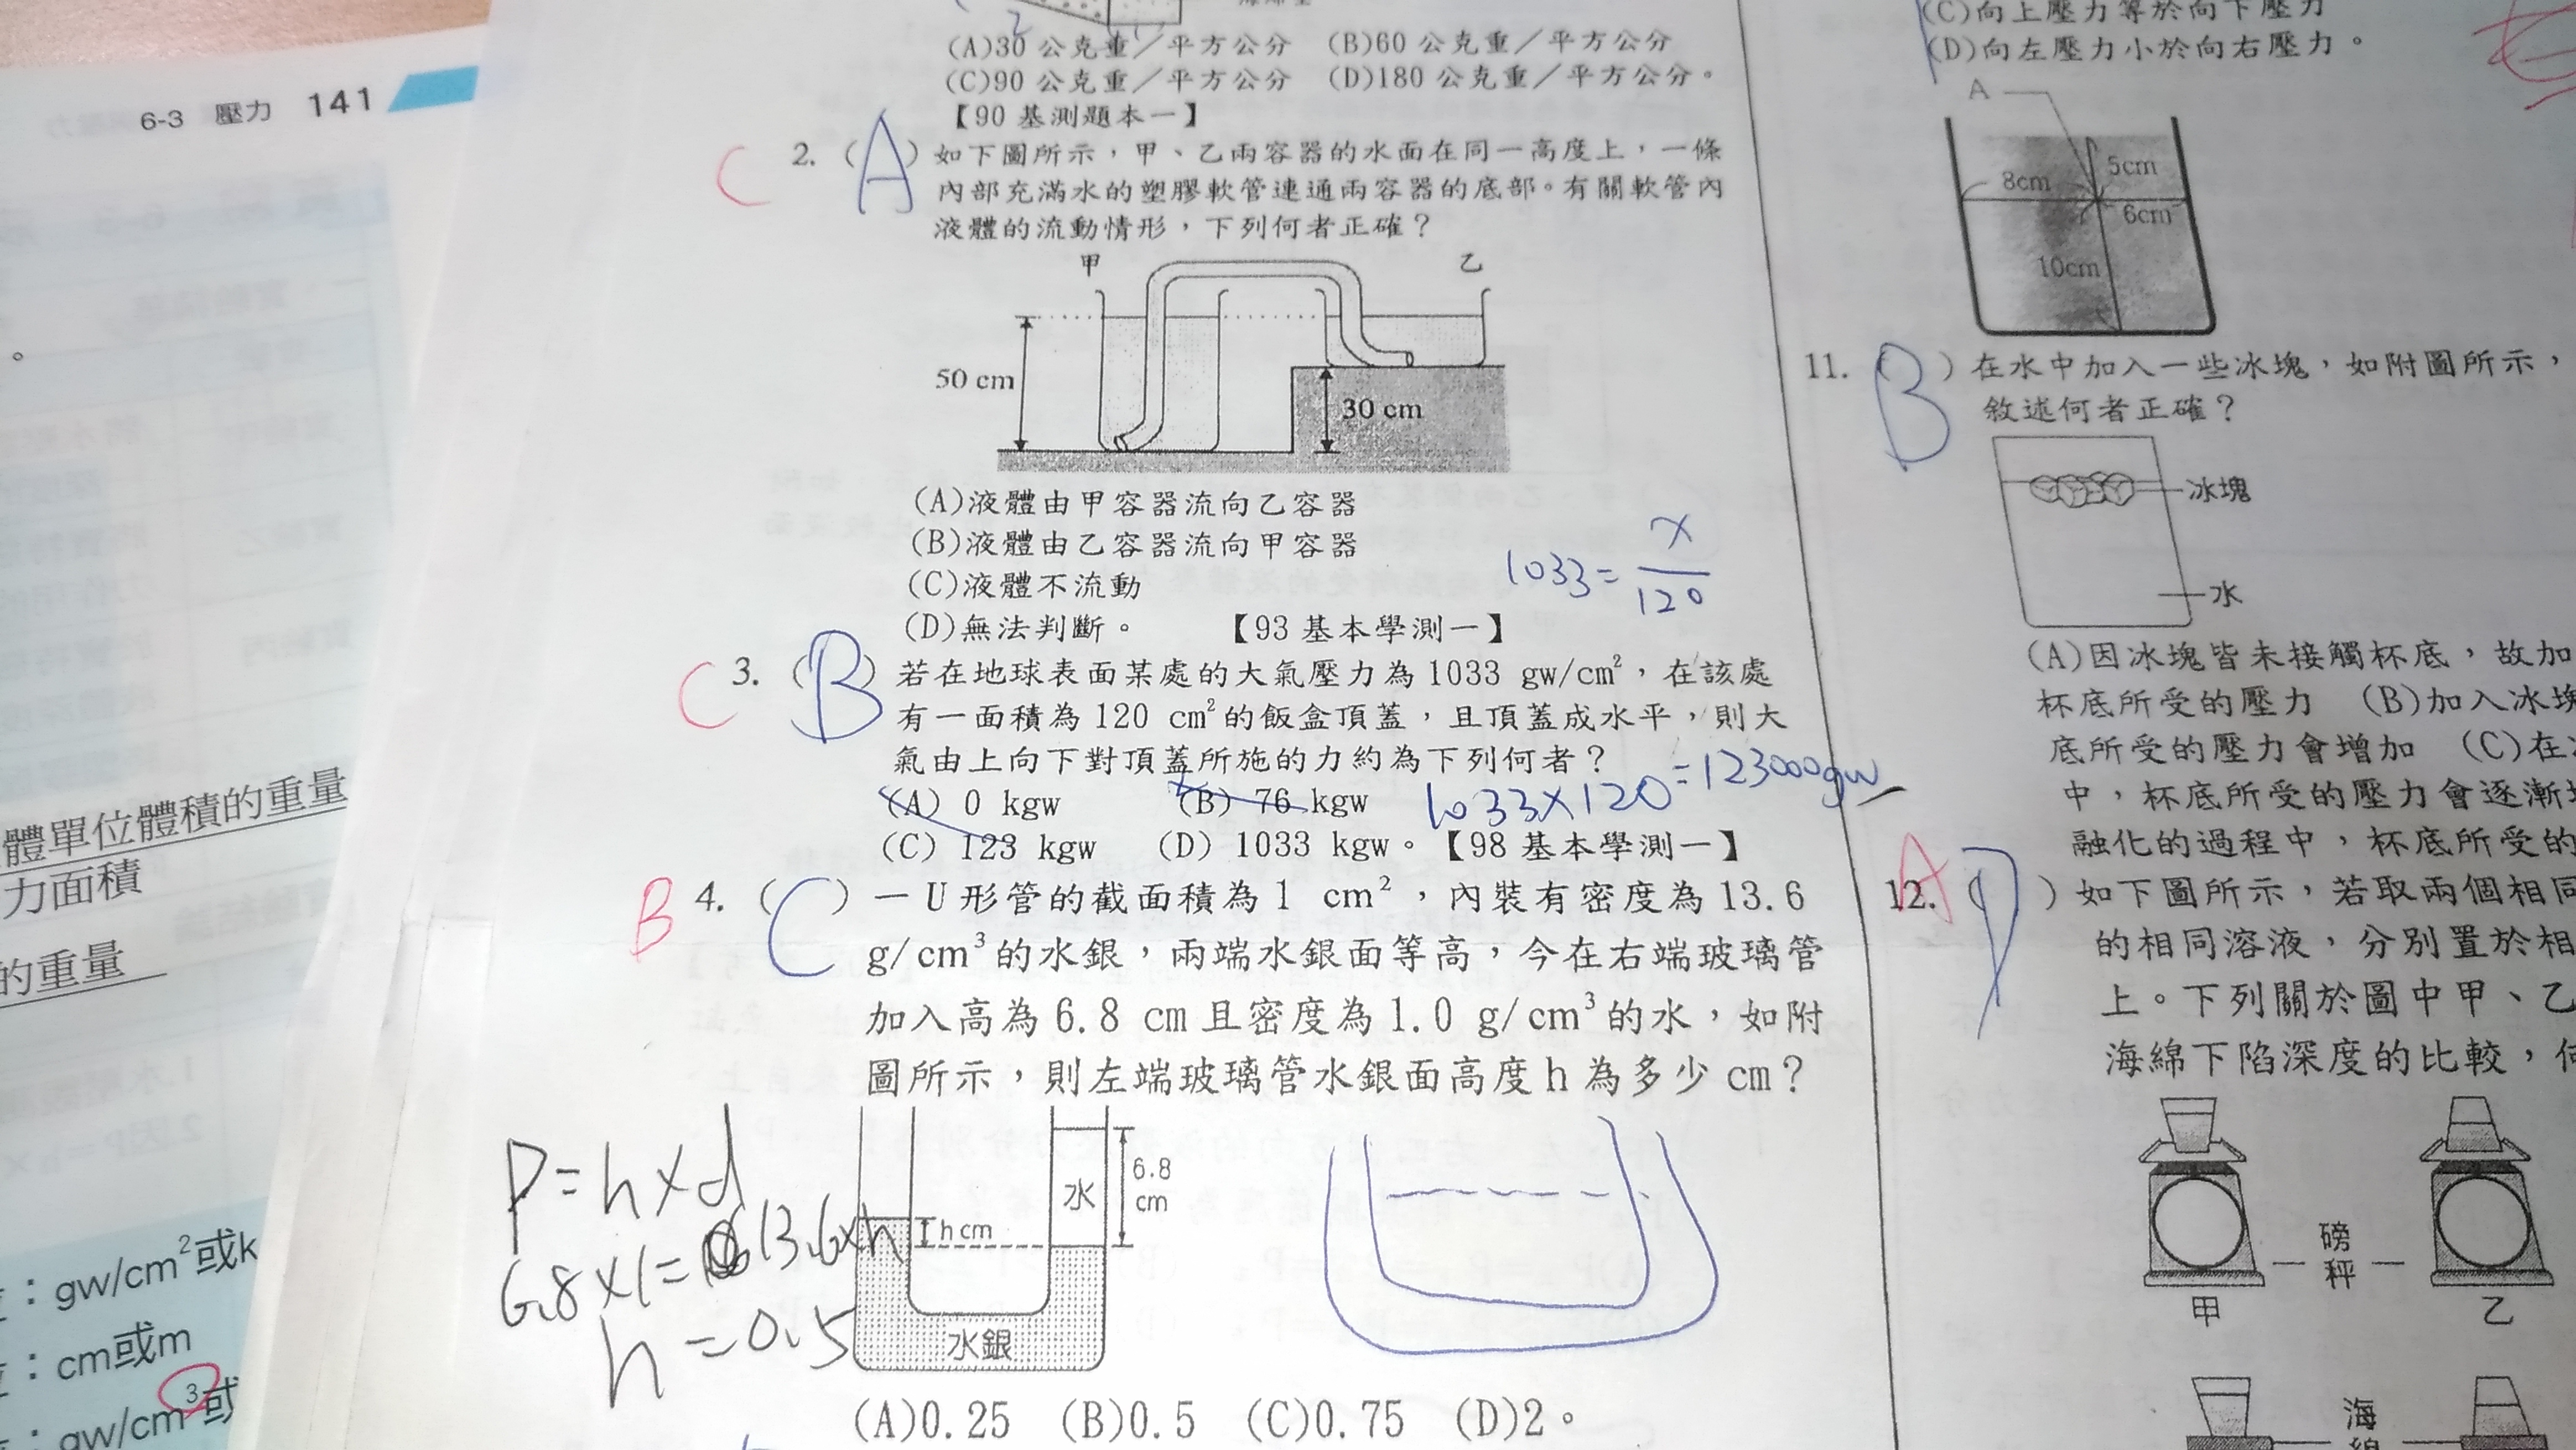 6-3 壓力 141
。
體單位體積的重量
力面積
的重量
：gw/cm²或k
：cm或m
：gw/cm³或
(A)30 公克重／平方公分 (B)60 公克重／平方公分
(C)90 公克重／平方公分 (D)180 公克重／平方公分。
【90 基測題本一】
C 2. (A) 如下圖所示，甲、乙兩容器的水面在同一高度上，一條
內部充滿水的塑膠軟管連通兩容器的底部。有關軟管內
液體的流動情形，下列何者正確？
甲 乙
50 cm
30 cm
(A)液體由甲容器流向乙容器
(B)液體由乙容器流向甲容器
(C)液體不流動
(D)無法判斷。 【93 基本學測一】
1033=x/120
C 3. (B) 若在地球表面某處的大氣壓力為 1033 gw/cm²，在該處
有一面積為 120 cm²的飯盒頂蓋，且頂蓋成水平，則大
氣由上向下對頂蓋所施的力約為下列何者？
(A) 0 kgw (B) 76 kgw
1033×120=123000gw
(C) 123 kgw (D) 1033 kgw。【98 基本學測一】
B 4. (C) 一 U 形管的截面積為 1 cm²，內裝有密度為 13.6
g/cm³的水銀，兩端水銀面等高，今在右端玻璃管
加入高為 6.8 cm 且密度為 1.0 g/cm³的水，如附
圖所示，則左端玻璃管水銀面高度 h 為多少 cm？
P=h×d
6.8×1=13.6×h
h=0.5
水
6.8
cm
h cm
水銀
(A)0.25 (B)0.5 (C)0.75 (D)2。
(C)向上壓力等於向下壓力
(D)向左壓力小於向右壓力。
A
5cm
8cm
6cm
10cm
11. (B) 在水中加入一些冰塊，如附圖所示，
敘述何者正確？
冰塊
水
(A)因冰塊皆未接觸杯底，故加
杯底所受的壓力 (B)加入冰塊
底所受的壓力會增加 (C)在
中，杯底所受的壓力會逐漸
融化的過程中，杯底所受的
A 12. (D) 如下圖所示，若取兩個相同
的相同溶液，分別置於相
上。下列關於圖中甲、乙
海綿下陷深度的比較，何
磅
秤
甲 乙
海
綿